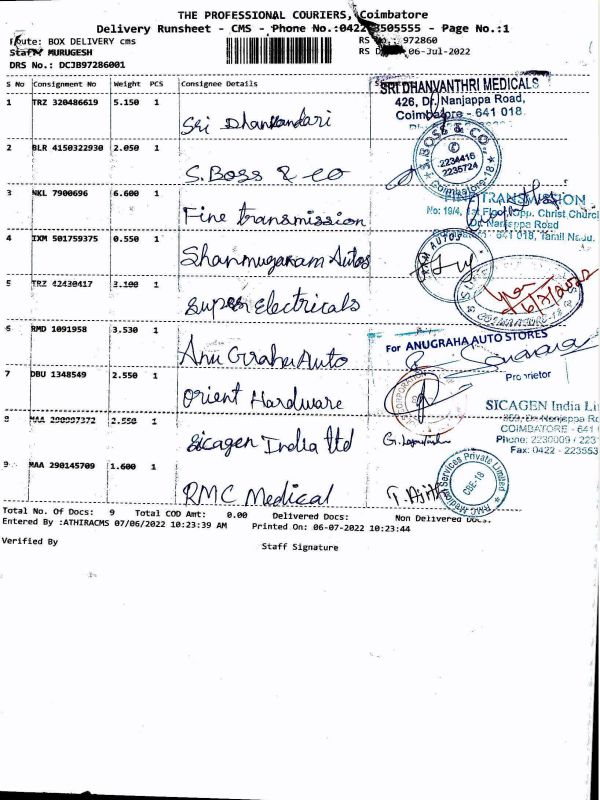 THE PROFESSIONAL COURIERS, Coimbatore
Delivery Runsheet - CMS - Phone No.:0422 3505555 - Page No.:1
Route: BOX DELIVERY cms
RS No.: 972860
Staff: MURUGESH
RS 06-Jul-2022
DRS No.: DCJB97286001
S No Consignment No Weight PCS Consignee Details
1 TRZ 320486619 5.150 1 Sri Dhanvandari
SRI DHANVANTHRI MEDICALS
426, Dr. Nanjappa Road,
Coimbatore - 641 018.
2 BLR 4150322930 2.050 1 S. Boss & co
S. BOSS & CO.
2234416
2235724
Coimbatore-18
3 NKL 7900696 6.600 1 Fine transmission
FINE TRANSMISSION
No: 19/4, 1st Floor, Opp. Christ Church
Dr. Nanjappa Road
641 018, Tamil Nadu.
4 IXM 501759375 0.550 1 Shanmuganam Autos
AUTOS
5 TRZ 42430417 3.100 1 Super Electricals
COIMBATORE-18
6 RMD 1091958 3.530 1 Anu Graha Auto
For ANUGRAHA AUTO STORES
Proprietor
7 DBU 1348549 2.550 1 Orient Hardware
CORPORATION
8 MAA 290097372 2.550 1 Sicagen India ltd
SICAGEN India Li
Dr. Nanjappa Ro
COIMBATORE - 641
Phone: 2230009 / 223
Fax: 0422 - 223553
9 MAA 290145709 1.600 1 RMC Medical
RMC Medical Services Private Limited
CBE-18
Total No. Of Docs: 9 Total COD Amt: 0.00 Delivered Docs: Non Delivered Docs:
Entered By :ATHIRACMS 07/06/2022 10:23:39 AM Printed On: 06-07-2022 10:23:44
Verified By
Staff Signature